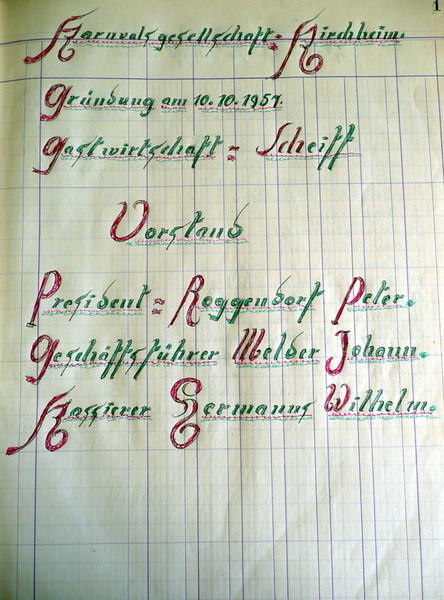 1
Karnvalsgesellschaft = Kirchheim.
Gründung am 10.10.1957.
Gastwirtschaft = Scheiff
Vorstand
President = Roggendorf Peter.
Geschäftsführer Melder Johann.
Kassierer Germanns Wilhelm.